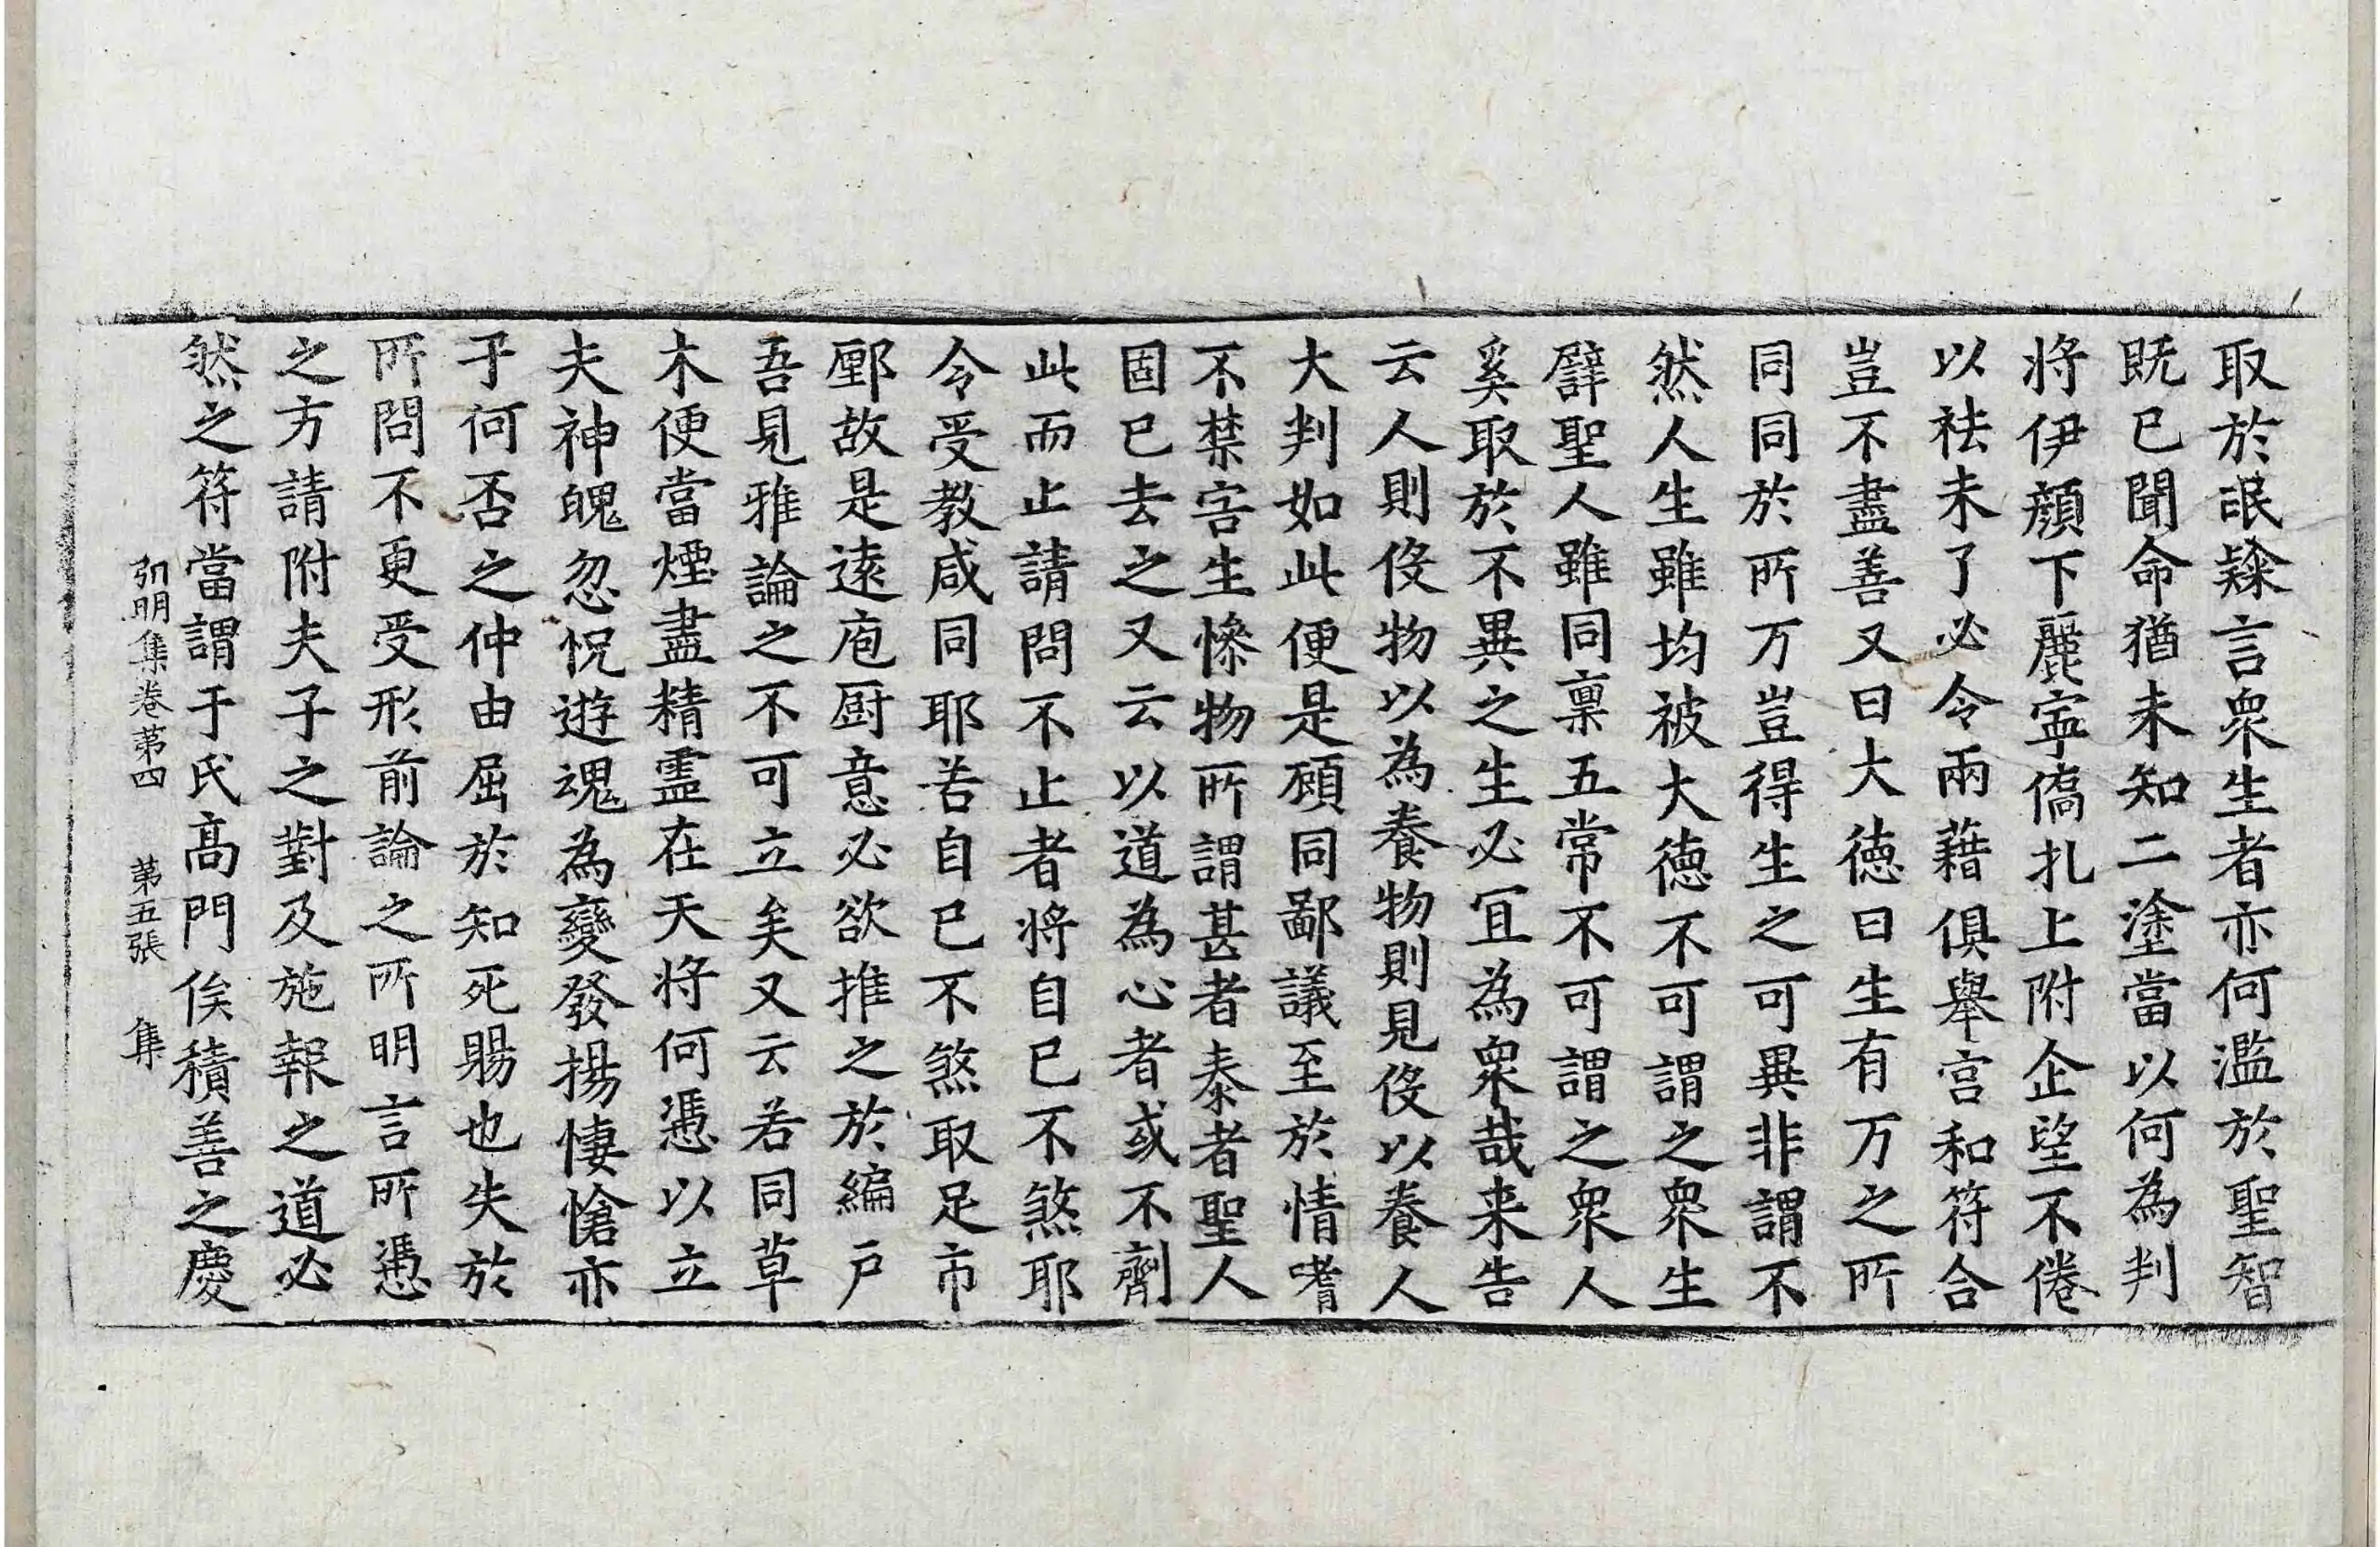 取於氓㯲言衆生者亦何濫於聖智
既已聞命猶未知二塗當以何為判
将伊顔下麗寧僑扎上附企望不倦
以祛未了必令兩藉俱舉宫和符合
豈不盡善又曰大徳曰生有万之所
同同於所万豈得生之可異非謂不
然人生雖均被大徳不可謂之衆生
譬聖人雖同禀五常不可謂之衆人
奚取於不異之生必冝為衆哉来告
云人則役物以為養物則見役以養人
大判如此便是頋同鄙議至於情嗜
不禁害生慘物所謂甚者泰者聖人
固已去之又云以道為心者或不劑
此而止請問不止者将自已不煞耶
令受教咸同耶若自已不煞取足市
鄽故是逺庖厨意必欲推之於編户
吾見雅論之不可立矣又云若同草
木便當煙盡精靈在天将何憑以立
夫神魄忽怳遊魂為變發揚悽愴亦
于何否之仲由屈於知死賜也失於
所問不更受形前論之所明言所憑
之方請附夫子之對及施報之道必
然之符當謂于氏髙門俟積善之慶
弘明集卷第四 第五張 集